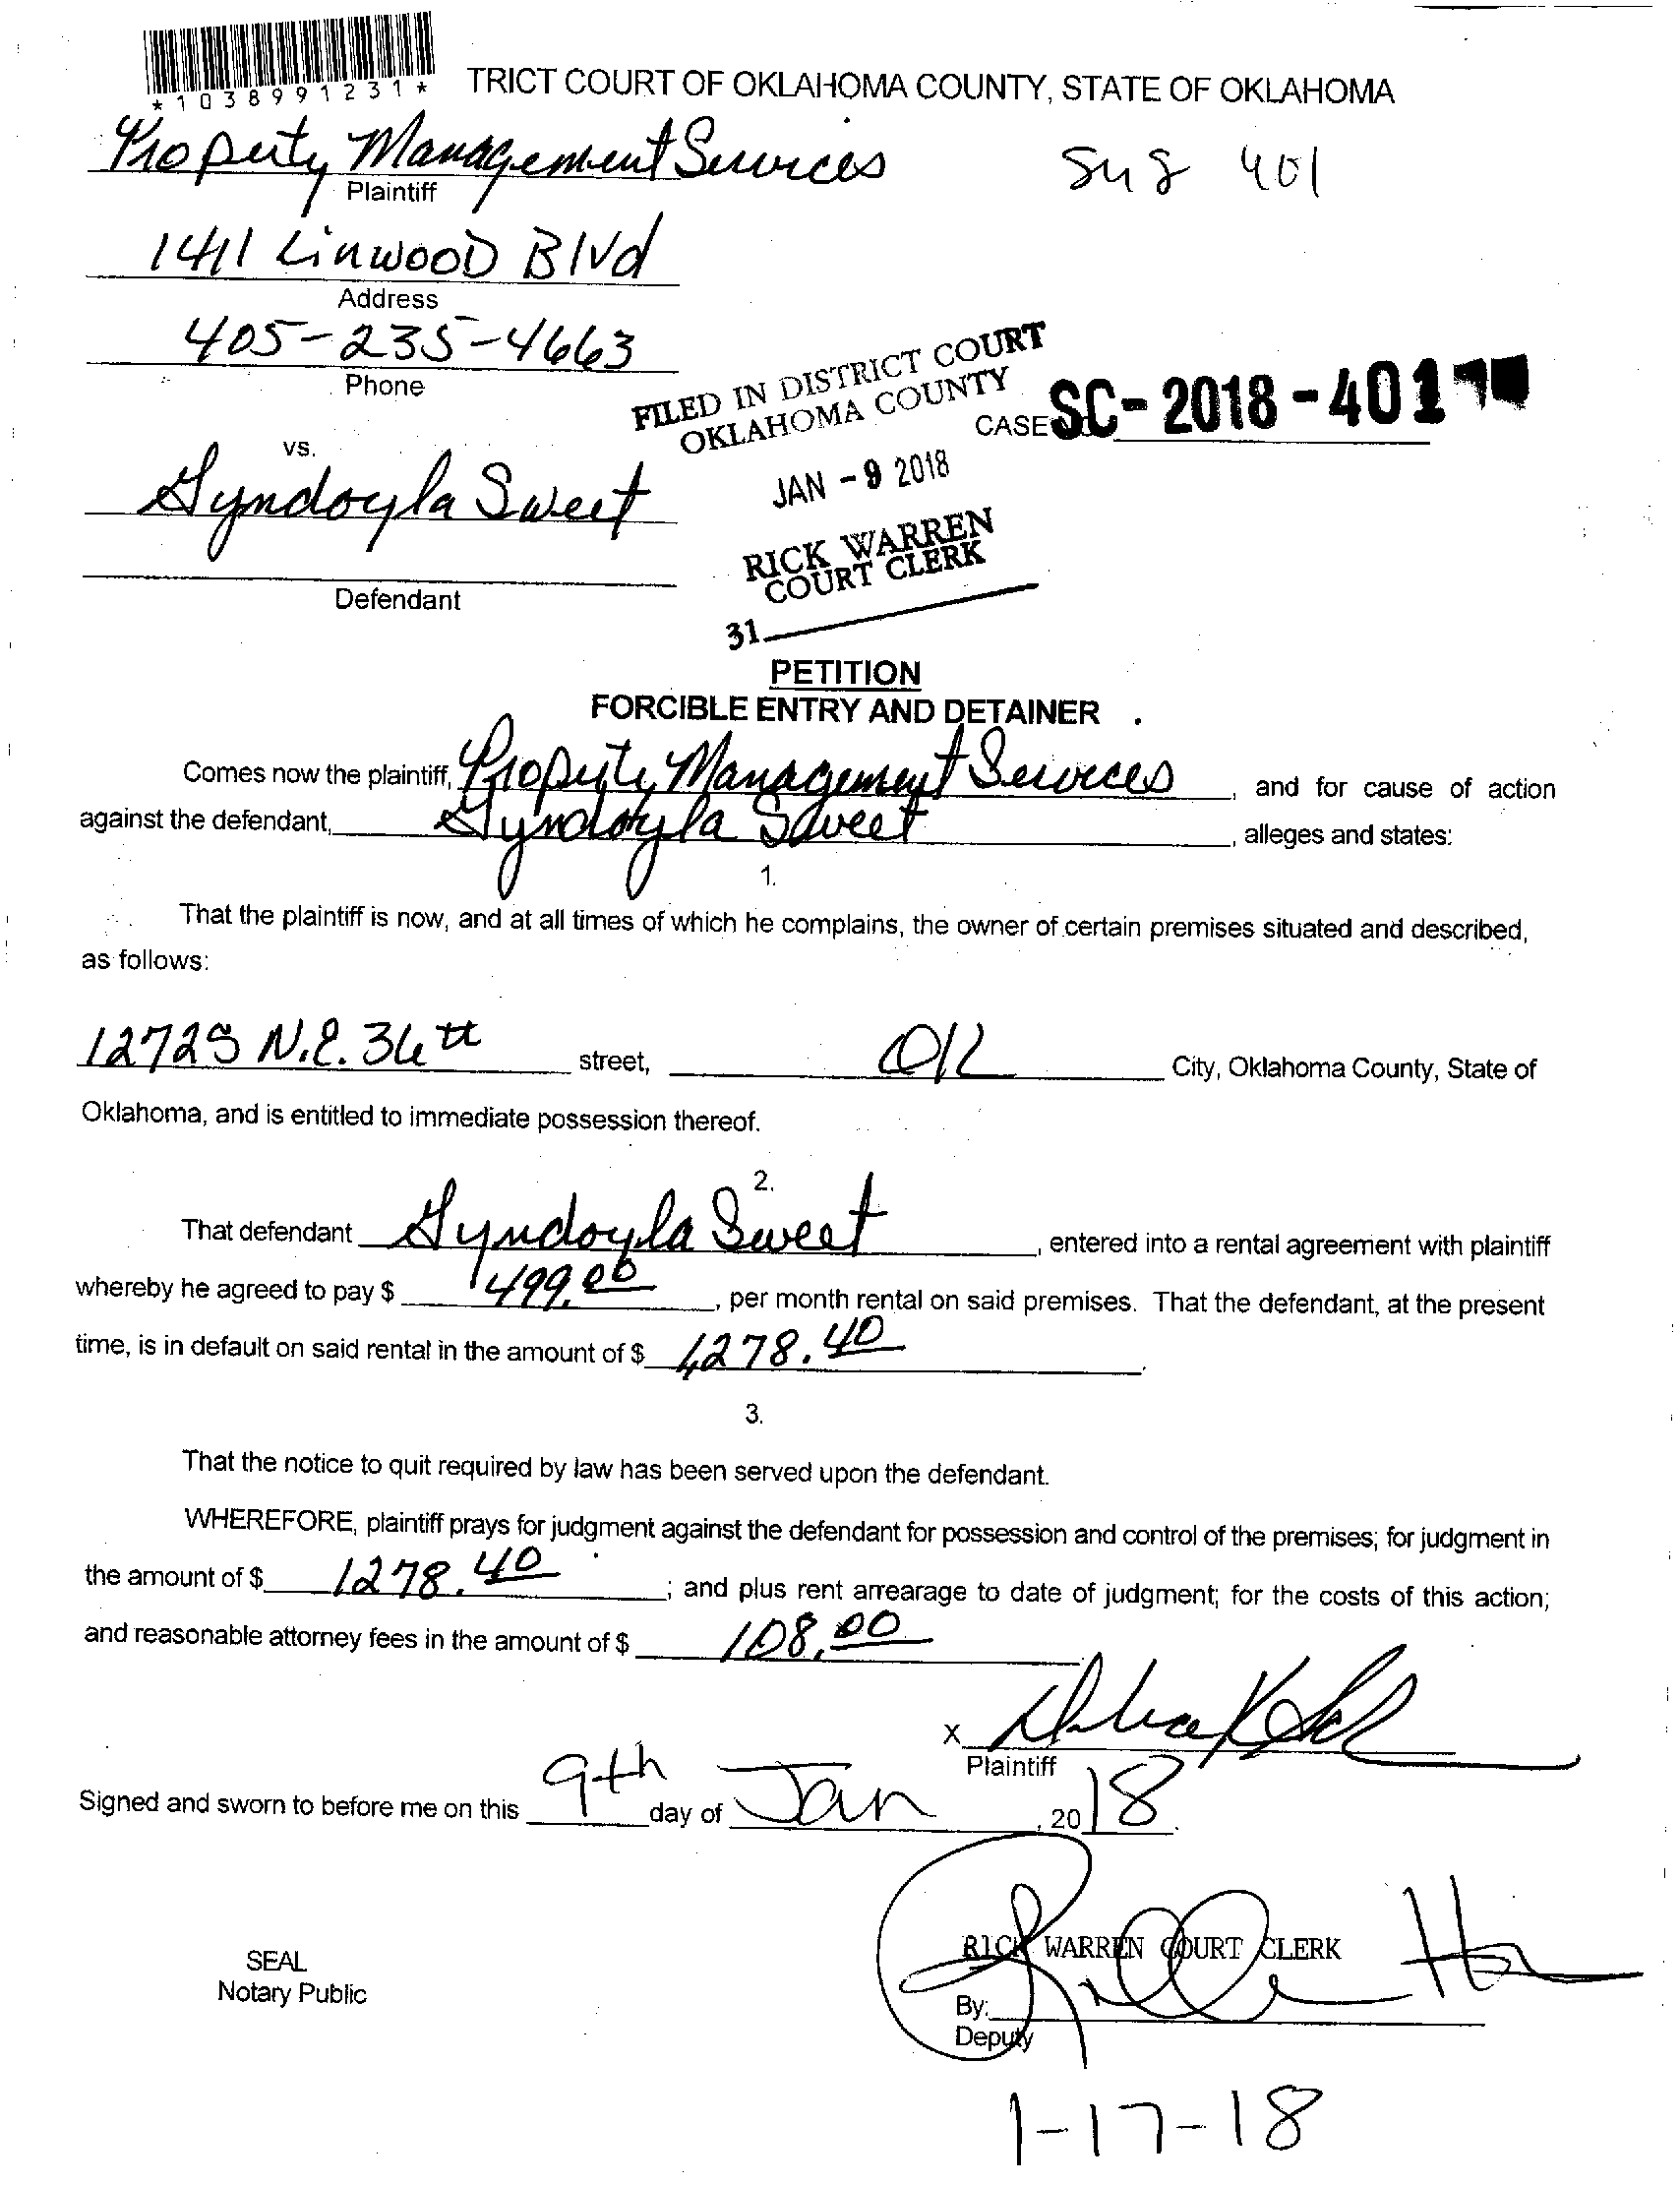 *1038991231*
TRICT COURT OF OKLAHOMA COUNTY, STATE OF OKLAHOMA
Property Management Services
Plaintiff
401
1411 Linwood Blvd
Address
405-235-4663
Phone
FILED IN DISTRICT COURT
OKLAHOMA COUNTY
CASE SC-2018-401
JAN - 9 2018
vs.
Syndoyla Sweet
RICK WARREN
COURT CLERK
Defendant
31
PETITION
FORCIBLE ENTRY AND DETAINER
Comes now the plaintiff, Property Management Services, and for cause of action
against the defendant, Syndoyla Sweet, alleges and states:
1.
That the plaintiff is now, and at all times of which he complains, the owner of certain premises situated and described,
as follows:
12725 N.E. 36th street, OK City, Oklahoma County, State of
Oklahoma, and is entitled to immediate possession thereof.
2.
That defendant Syndoyla Sweet, entered into a rental agreement with plaintiff
whereby he agreed to pay $ 499.00, per month rental on said premises. That the defendant, at the present
time, is in default on said rental in the amount of $ 1278.40.
3.
That the notice to quit required by law has been served upon the defendant.
WHEREFORE, plaintiff prays for judgment against the defendant for possession and control of the premises; for judgment in
the amount of $ 1278.40; and plus rent arrearage to date of judgment; for the costs of this action;
and reasonable attorney fees in the amount of $ 108.00
X
Plaintiff
Signed and sworn to before me on this 9th day of Jan, 2018.
RICK WARREN COURT CLERK
SEAL
Notary Public
By:
Deputy
1-17-18